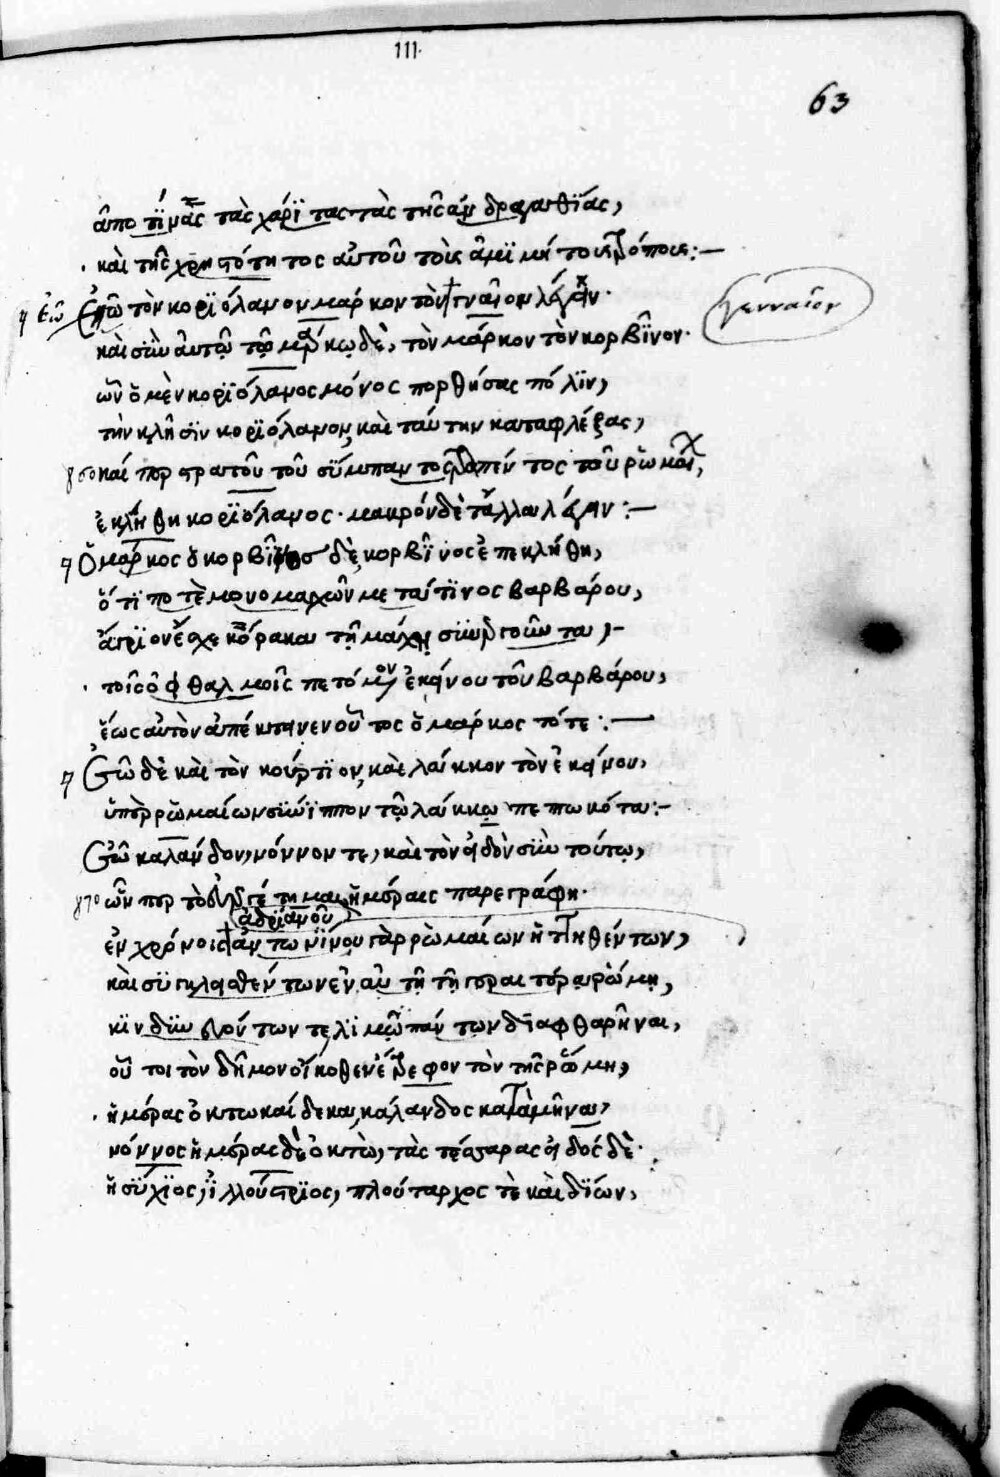 111.
63
ἀποτιμᾶς τὰς χάριτας τὰς τῆς ἀνδραγαθίας,
καὶ τῆς χρηστότητος αὐτοῦ τοῖς ἀμιμήτοις τρόποις:—
ἐῶ Ἐῶ τὸν κοριόλανον μάρκον τὸν γναῖον λέγειν· γενναῖον
καὶ σὺν αὐτῷ τῷ μάρκῳ δὲ, τὸν μάρκον τὸν κορβῖνον·
ὧν ὁ μὲν κοριόλανος μόνος πορθήσας πόλιν,
τὴν κλῆσιν κοριόλανον, καὶ ταύτην καταφλέξας,
καί περ στρατοῦ τοῦ σύμπαντος τραπέντος τοῦ ῥωμαϊκοῦ,
ἐκλήθη κοριόλανος· μακρὸν δὲ τἄλλα λέγειν:—
Ὁ μάρκος ὁ κορβῖνος δὲ, κορβῖνος ἐπεκλήθη,
ὅτι ποτὲ μονομαχῶν μετά τινος βαρβάρου,
ἄγριον ἔσχε κόρακα τῇ μάχῃ συνεργοῦντα,
τοῖς ὀφθαλμοῖς πετόμενον ἐκείνου τοῦ βαρβάρου,
ἕως αὐτὸν ἀπέκτεινεν οὗτος ὁ μάρκος τότε:—
Ἐῶ δὲ καὶ τὸν κούρτιον, καὶ λάκκον τὸν ἐκείνου,
ὑπὲρ ῥωμαίων σὺν ἵππον τῷ λάκκῳ πεπτωκότα:—
Ἐῶ καλάνδον, νόννον τε, καὶ τὸν εἰδὸν σὺν τούτῳ,
ὧν περ τὸ ἡμέραις παρεγράφη·
ἀδριανοῦ
ἐν χρόνοις ἀντωνίνου γὰρ ῥωμαίων ἡττηθέντων,
καὶ συγκλεισθέντων ἐν αὐτῇ τῇ γεραιτέρᾳ ῥώμῃ,
κινδυνευόντων τε λιμῷ πάντων διαφθαρῆναι,
οὗτοι τὸν δῆμον οἴκοθεν ἔτρεφον τὸν τῆς ῥώμης,
ἡμέρας ὀκτωκαίδεκα, κάλανδος κατὰ μῆνα,
νόννος ἡμέρας δὲ ὀκτὼ, τὰς τέσσαρας εἰδὸς δὲ·
ἡσύχιος, ἰλλούστριος, πλούταρχος τὲ καὶ δίων,